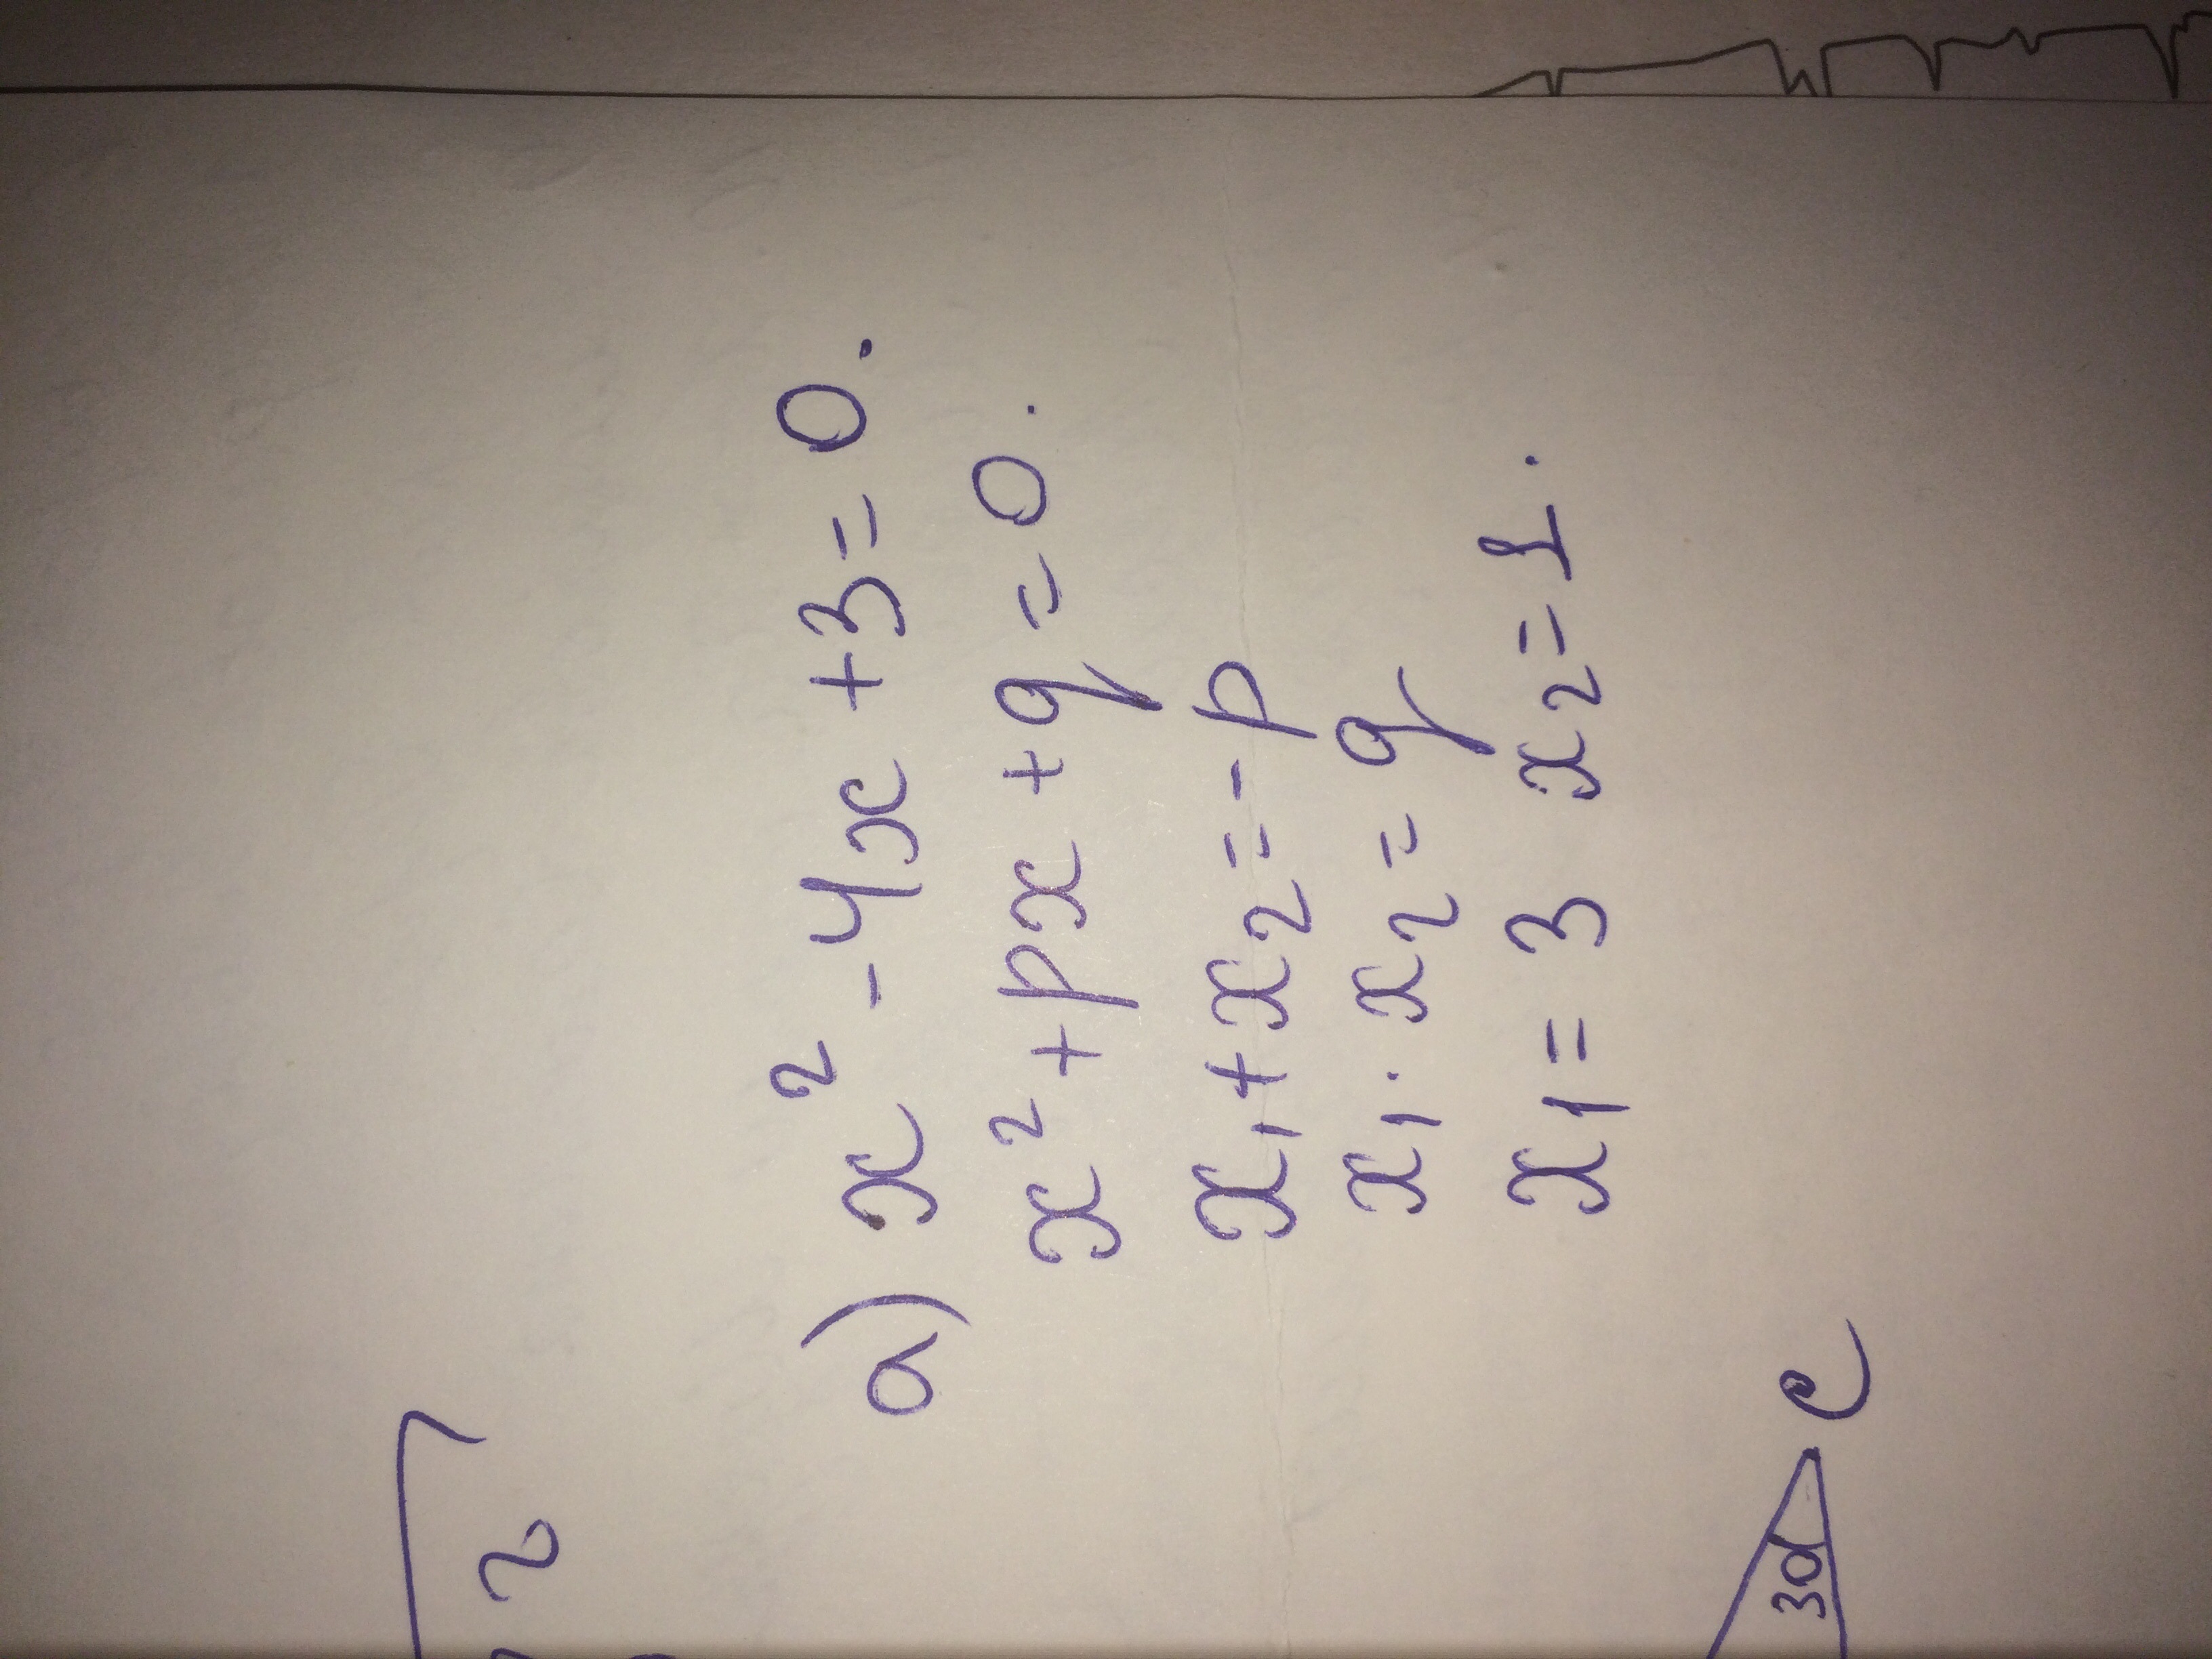 a) x² - 4x + 3 = 0.
x² + px + q = 0.
x₁ + x₂ = -p
x₁ · x₂ = q
x₁ = 3 x₂ = 1.
2
30
C